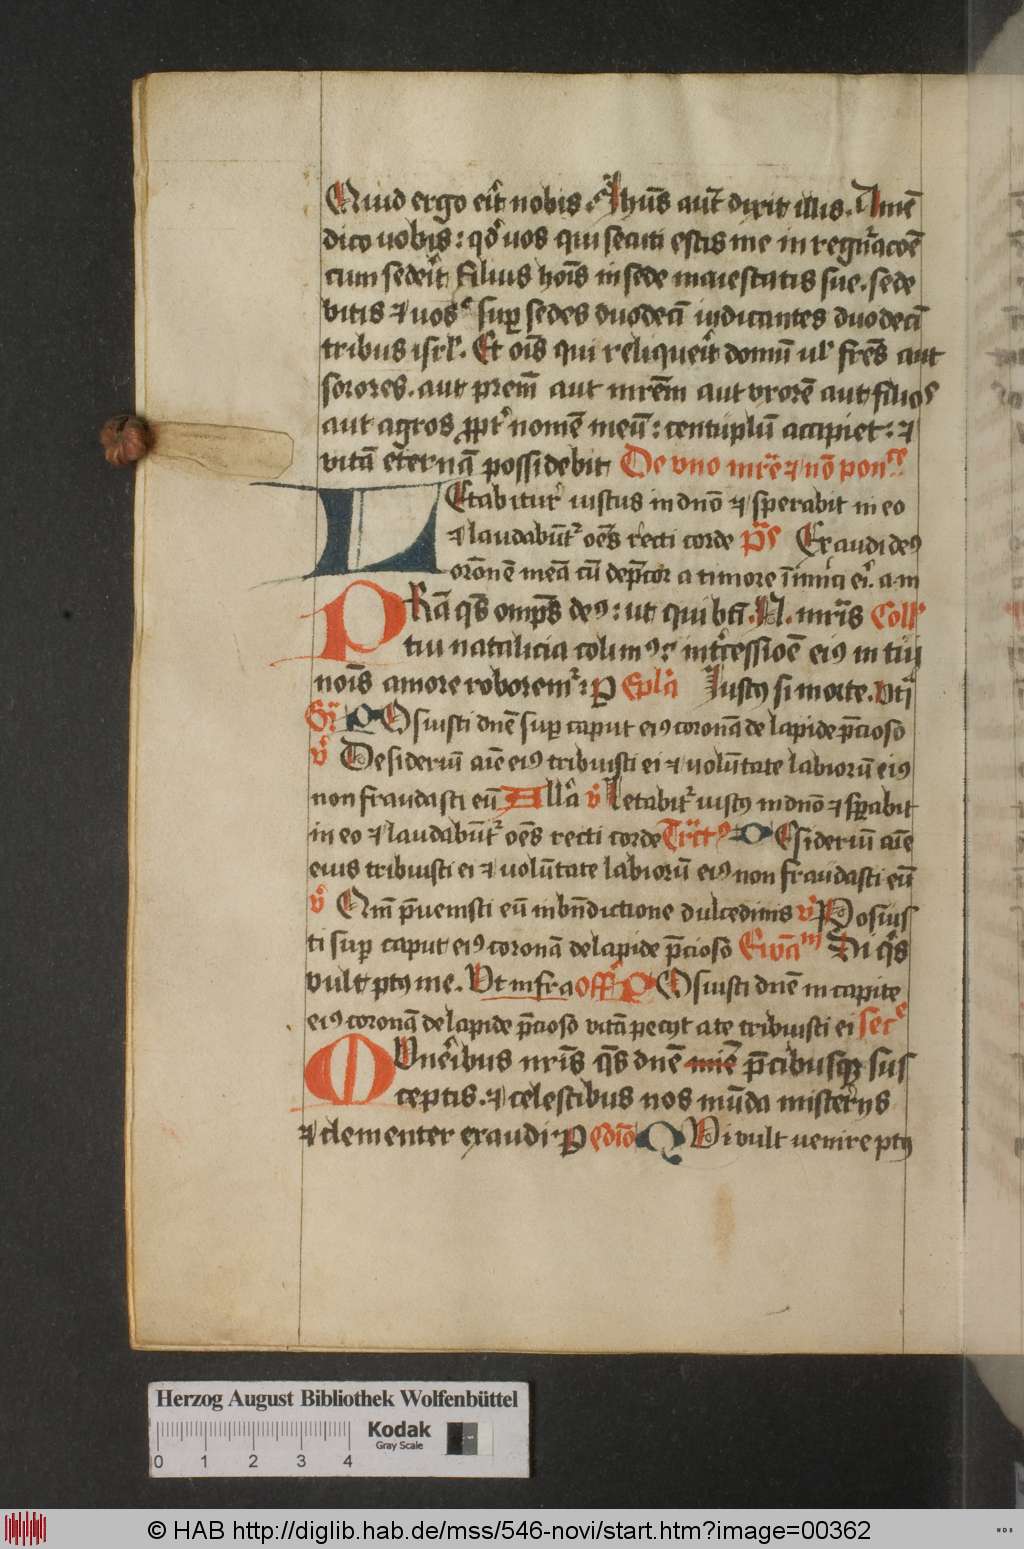 Quid ergo erit nobis. Ihūs aūt dixit illis. Amē
dico uobis: qđ uos qui secuti estis me in regn̄acōe
cum sederit filius hoīs in sede maiestatis sue. sede
bitis ⁊ uos sup̱ sedes duodecī iudicantes duodecī
tribus isrl̄. Et oīs qui reliquerit domū ul̄ fr̄es aut
sorores. aut pr̄em aut mr̄em aut vxorē aut filios
aut agros ꝓpt̄ nomē meū: centuplū accipiet: ⁊
vitā et̄ernā possidebit De vno mr̄e ⁊ nō pon
LEtabitur iustus in dn̄o ⁊ sperabit in eo
⁊ laudabūt̄ oēs recti corde p̄s Exaudi deꝰ
orōnem meā cū dep̄cor a timore īimici eī. a m
PRā qs̄ omps̄ deꝰ: ut qui btī. N. mr̄is Coll̄
tui natalicia colimꝰ: int̄cessiōe eiꝰ in tui
noīs amore roboremr̄: P Epl̄a Iustꝰ si morte. Vtī
Gr̄ POsuisti dn̄e sup̱ caput eiꝰ coronā de lapide p̄cioso
v̄ Desideriū aīe eiꝰ tribuisti ei ⁊ uolūtate labiorū eiꝰ
non fraudasti eū All̄a v̄ Letabit̄ iustꝰ in dn̄o ⁊ sp̱abit
in eo ⁊ laudabūt̄ oēs recti corde Tr̄ctꝰ DEsideriū aīe
eius tribuisti ei ⁊ uolūtate labiorū eiꝰ non fraudasti eū
v̄ Qm̄ p̄uenisti eū in bn̄dictione dulcedinis v̄ Posuis
ti sup̱ caput eiꝰ coronā de lapide p̄cioso Ewā Si qs̄
vult p̱ꝰ me. Vt infra off̄ POsuisti dn̄e in capite
eiꝰ coronā de lapide p̄cioso vitā petijt a te tribuisti ei secᵉ
MUneribus nr̄is qs̄ dn̄e p̄cibusqꝫ sus
ceptis. ⁊ celestibus nos mūda misterijs
⁊ clementer exaudi. P 9diō QUi vult uenire ptꝰ
Herzog August Bibliothek Wolfenbüttel
Kodak
Gray Scale
0 1 2 3 4
© HAB http://diglib.hab.de/mss/546-novi/start.htm?image=00362